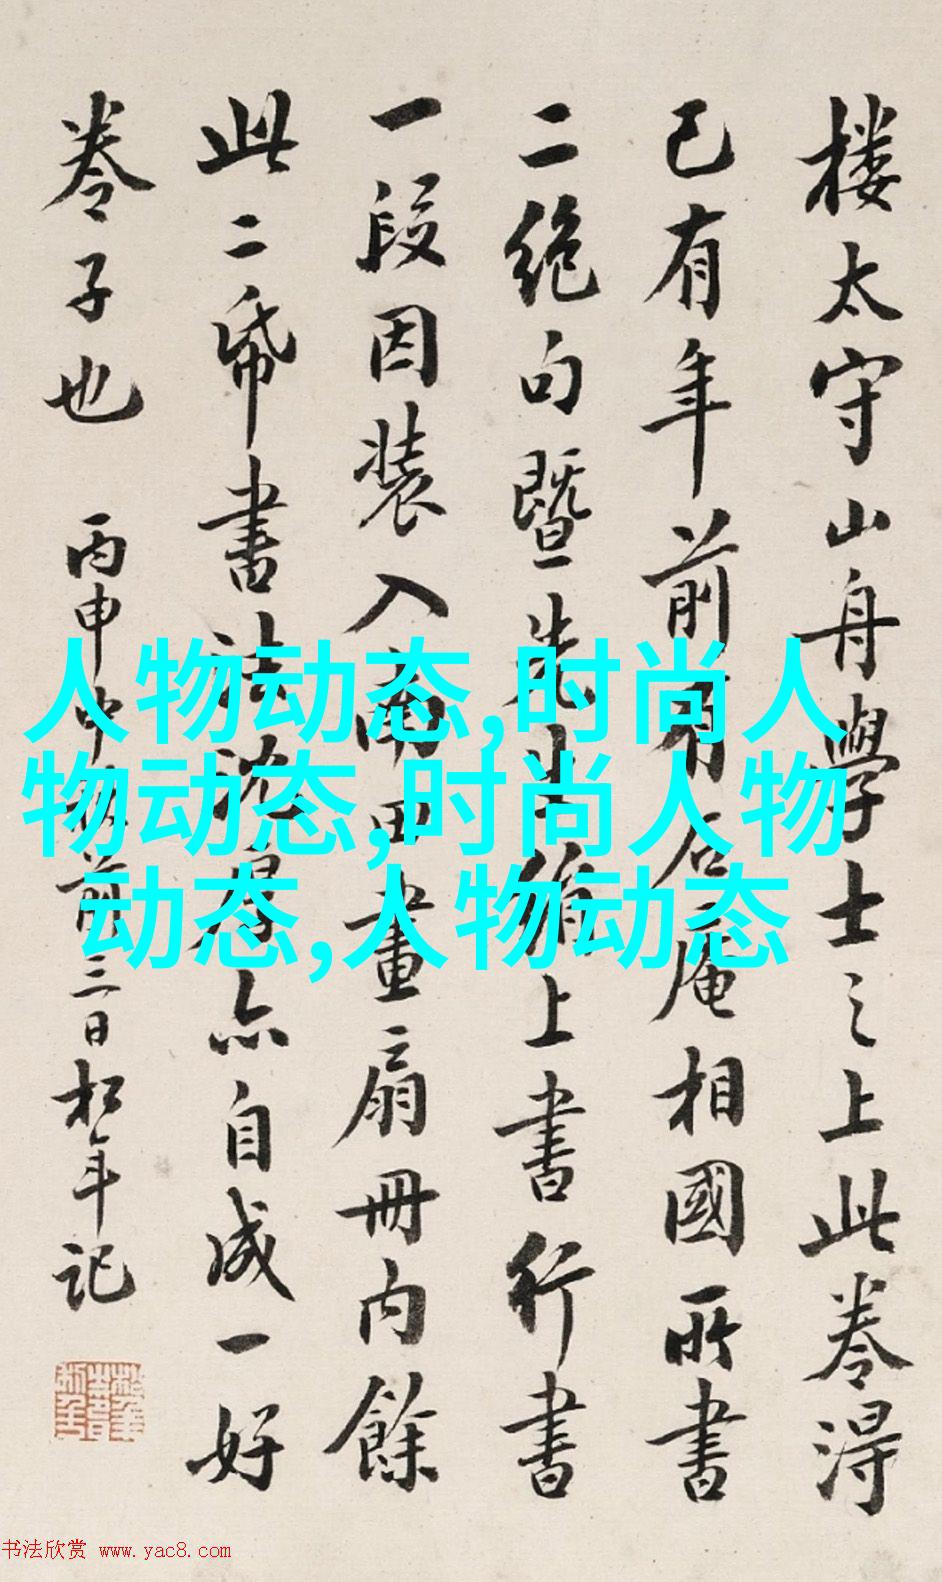 楼太守山舟學士之上此卷得
已有年前有石庵相國所書
二絶句暨先生絹上書行書
一段因装入南田畫扇冊内餘
此二帋書法沈厚亦自成一好
卷子也 丙申中秋前三日松年記
人物动态,时尚人
物动态,时尚人物
动态,人物动态
书法欣赏 www.yac8.com